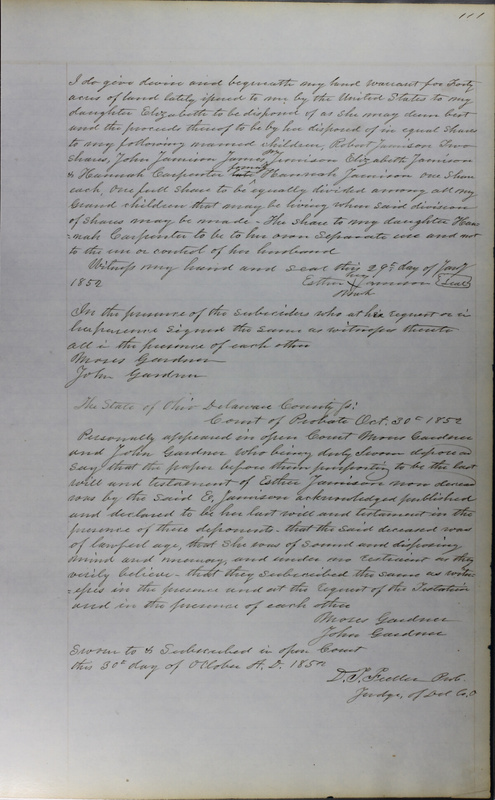 111
I do give devise and bequeath my land warrant for Forty
acres of land lately issued to me by the United States to my
daughter Elizabeth to be disposed of as she may deem best
and the proceeds thereof to be by her disposed of in equal shares
to my following named children, Robert Jamison Two
shares, John Jamison James Jamison Elizabeth Jamison
& Hannah Carpenter Hannah Jamison one share
each, one full share to be equally divided among all my
Grand children that may be living when said division
of shares may be made - The share to my daughter Han
=nah Carpenter to be to her own separate use and not
to the use or control of her husband
Witness my hand and seal this 29th day of Jany
1852 Esther her X mark Jamison Seal
In the presence of the subscribers who at her request or in
her presence signed the same as witnesses thereto
all in the presence of each other
Moses Gardner
John Gardner
The State of Ohio Delaware County ss:
Court of Probate Oct. 30th 1852
Personally appeared in open Court Moses Gardner
and John Gardner who being duly sworn depose &
say that the paper before them purporting to be the last
will and testament of Esther Jamison now deceas
was by the said E, Jamison acknowledged published
and declared to be her last will and testament in the
presence of these deponents - that the said deceased was
of lawful age, that she was of sound and disposing
mind and memory, and under no restraint as they
verily believe - that they subscribed the same as witn
=esses in the presence and at the request of the Testatrix
and in the presence of each other
Moses Gardner
John Gardner
Sworn to & Subscribed in open Court
this 30th day of October A. D. 1852
D. T. Fuller Prob.
Judge, of Del Co, O